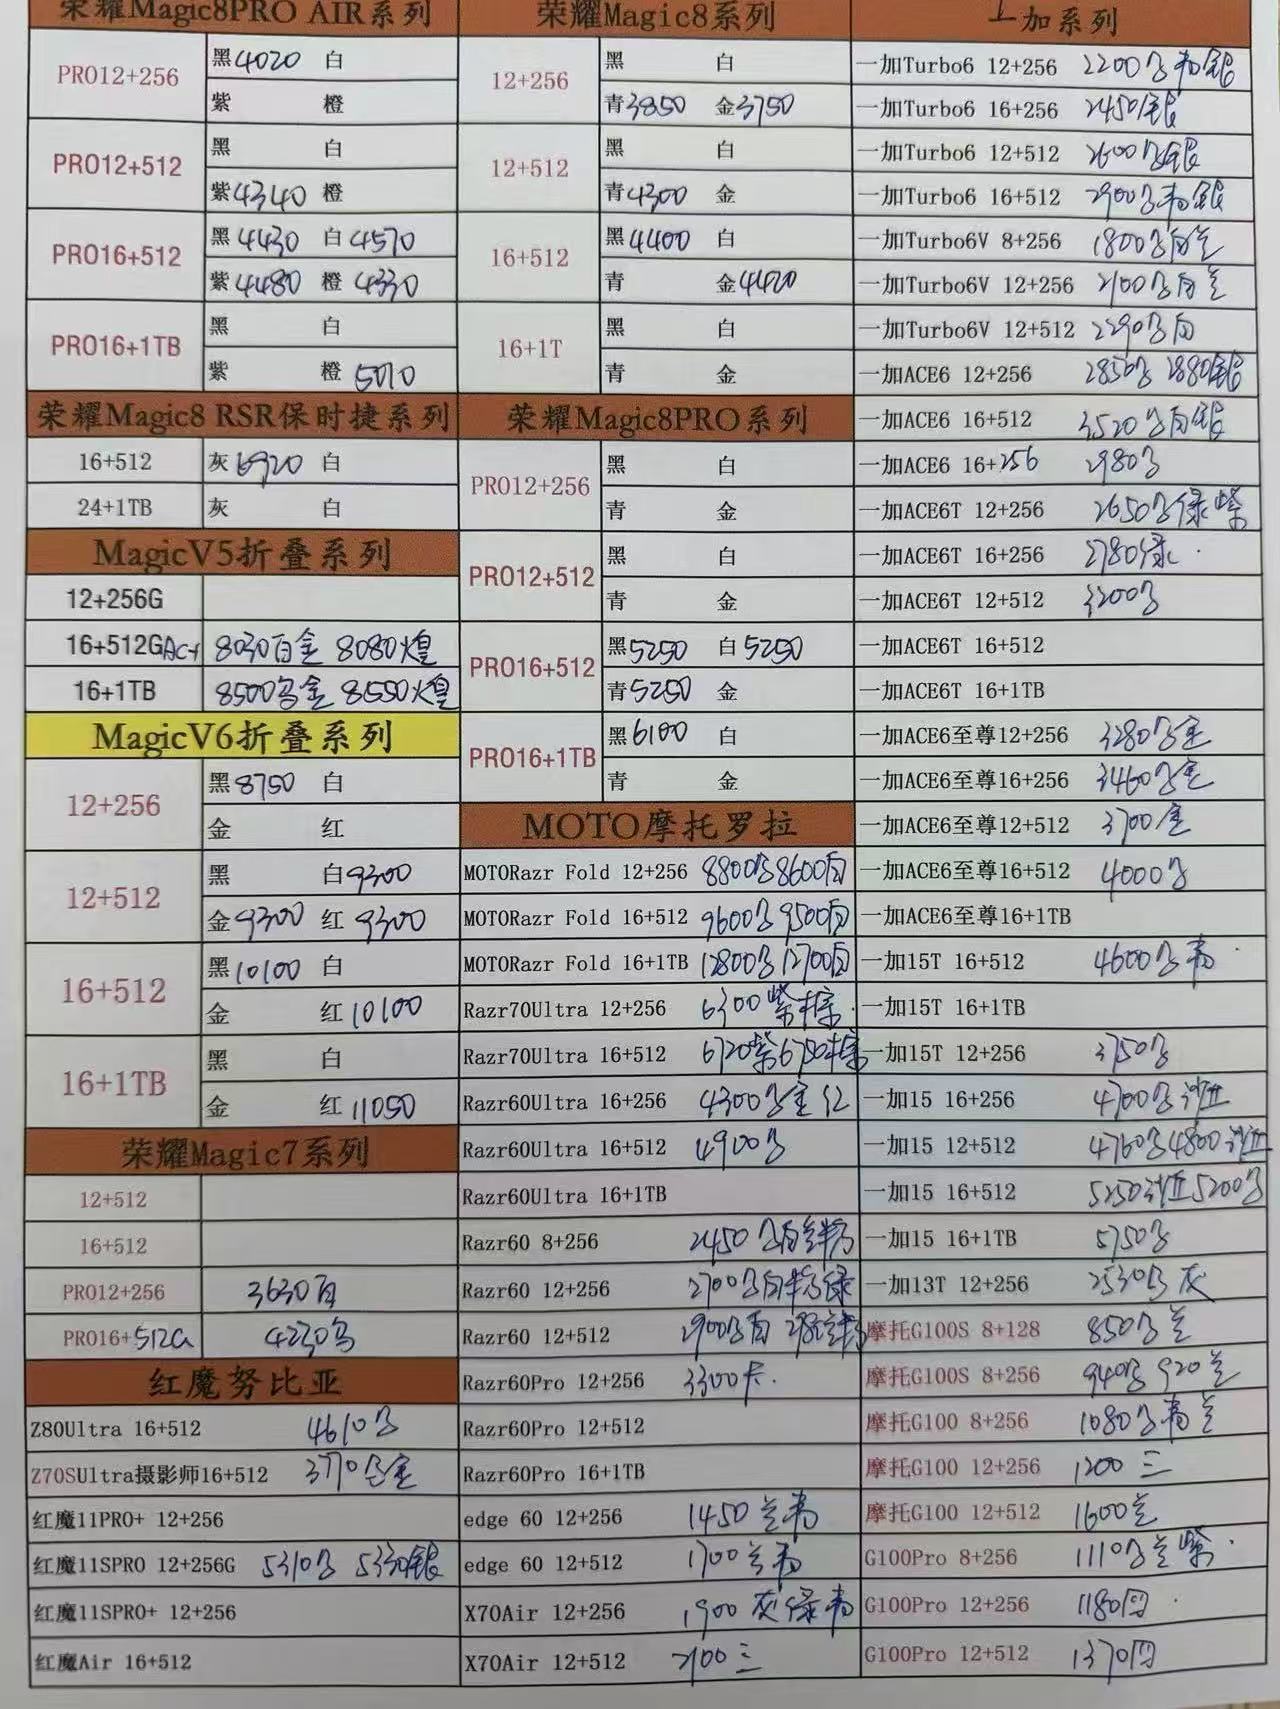 荣耀Magic8PRO AIR系列
PRO12+256
黑4020 白
紫 橙
PRO12+512
黑 白
紫4340 橙
PRO16+512
黑4430 白4570
紫4480 橙4330
PRO16+1TB
黑 白
紫 橙5070
荣耀Magic8 RSR保时捷系列
16+512 灰6920 白
24+1TB 灰 白
MagicV5折叠系列
12+256G
16+512G 8030白金 8080煌
16+1TB 8500 金 8550煌
MagicV6折叠系列
12+256
黑8750 白
金 红
12+512
黑 白9300
金9300 红9300
16+512
黑10100 白
金 红10100
16+1TB
黑 白
金 红11050
荣耀Magic7系列
12+512
16+512
PRO12+256 3630白
PRO16+512G 4230
红魔努比亚
Z80Ultra 16+512 4610
Z70SUltra摄影师16+512 3770 金
红魔11PRO+ 12+256
红魔11SPRO 12+256G 5310 5330银
红魔11SPRO+ 12+256
红魔Air 16+512
荣耀Magic8系列
12+256
黑 白
青3850 金3750
12+512
黑 白
青4300 金
16+512
黑4400 白
青 金4420
16+1T
黑 白
青 金
荣耀Magic8PRO系列
PRO12+256
黑 白
青 金
PRO12+512
黑 白
青 金
PRO16+512
黑5250 白5250
青5250 金
PRO16+1TB
黑6100 白
青 金
MOTO摩托罗拉
MOTORazr Fold 12+256 8800 8600白
MOTORazr Fold 16+512 9600 9500白
MOTORazr Fold 16+1TB 12800 12700白
Razr70Ultra 12+256 6300紫棕
Razr70Ultra 16+512 6720紫6750棕
Razr60Ultra 16+256 4300 金 红
Razr60Ultra 16+512 4900
Razr60Ultra 16+1TB
Razr60 8+256 2450 白兰粉
Razr60 12+256 2700 白粉绿
Razr60 12+512 2900 白
Razr60Pro 12+256 3300卡
Razr60Pro 12+512
Razr60Pro 16+1TB
edge 60 12+256 1450兰青
edge 60 12+512 1700兰青
X70Air 12+256 1900灰绿青
X70Air 12+512 2100三
一加系列
一加Turbo6 12+256 2200 银
一加Turbo6 16+256 2450银
一加Turbo6 12+512 2600 银
一加Turbo6 16+512 2900 银
一加Turbo6V 8+256 1800 白兰
一加Turbo6V 12+256 2100 白兰
一加Turbo6V 12+512 2290 白
一加ACE6 12+256 2850 2880银
一加ACE6 16+512 3520 白银
一加ACE6 16+256 2980
一加ACE6T 12+256 2650 绿紫
一加ACE6T 16+256 2780绿
一加ACE6T 12+512 3200
一加ACE6T 16+512
一加ACE6T 16+1TB
一加ACE6至尊12+256 3280 金
一加ACE6至尊16+256 3460 金
一加ACE6至尊12+512 3700金
一加ACE6至尊16+512 4000
一加ACE6至尊16+1TB
一加15T 16+512 4600
一加15T 16+1TB
一加15T 12+256 3750
一加15 16+256 4700
一加15 12+512 4760 4800
一加15 16+512 5250 5200
一加15 16+1TB 5750
一加13T 12+256 2530 灰
摩托G100S 8+128 850 兰
摩托G100S 8+256 940 920兰
摩托G100 8+256 1080 青兰
摩托G100 12+256 1200三
摩托G100 12+512 1600兰
G100Pro 8+256 1110 兰紫
G100Pro 12+256 1180四
G100Pro 12+512 1370四